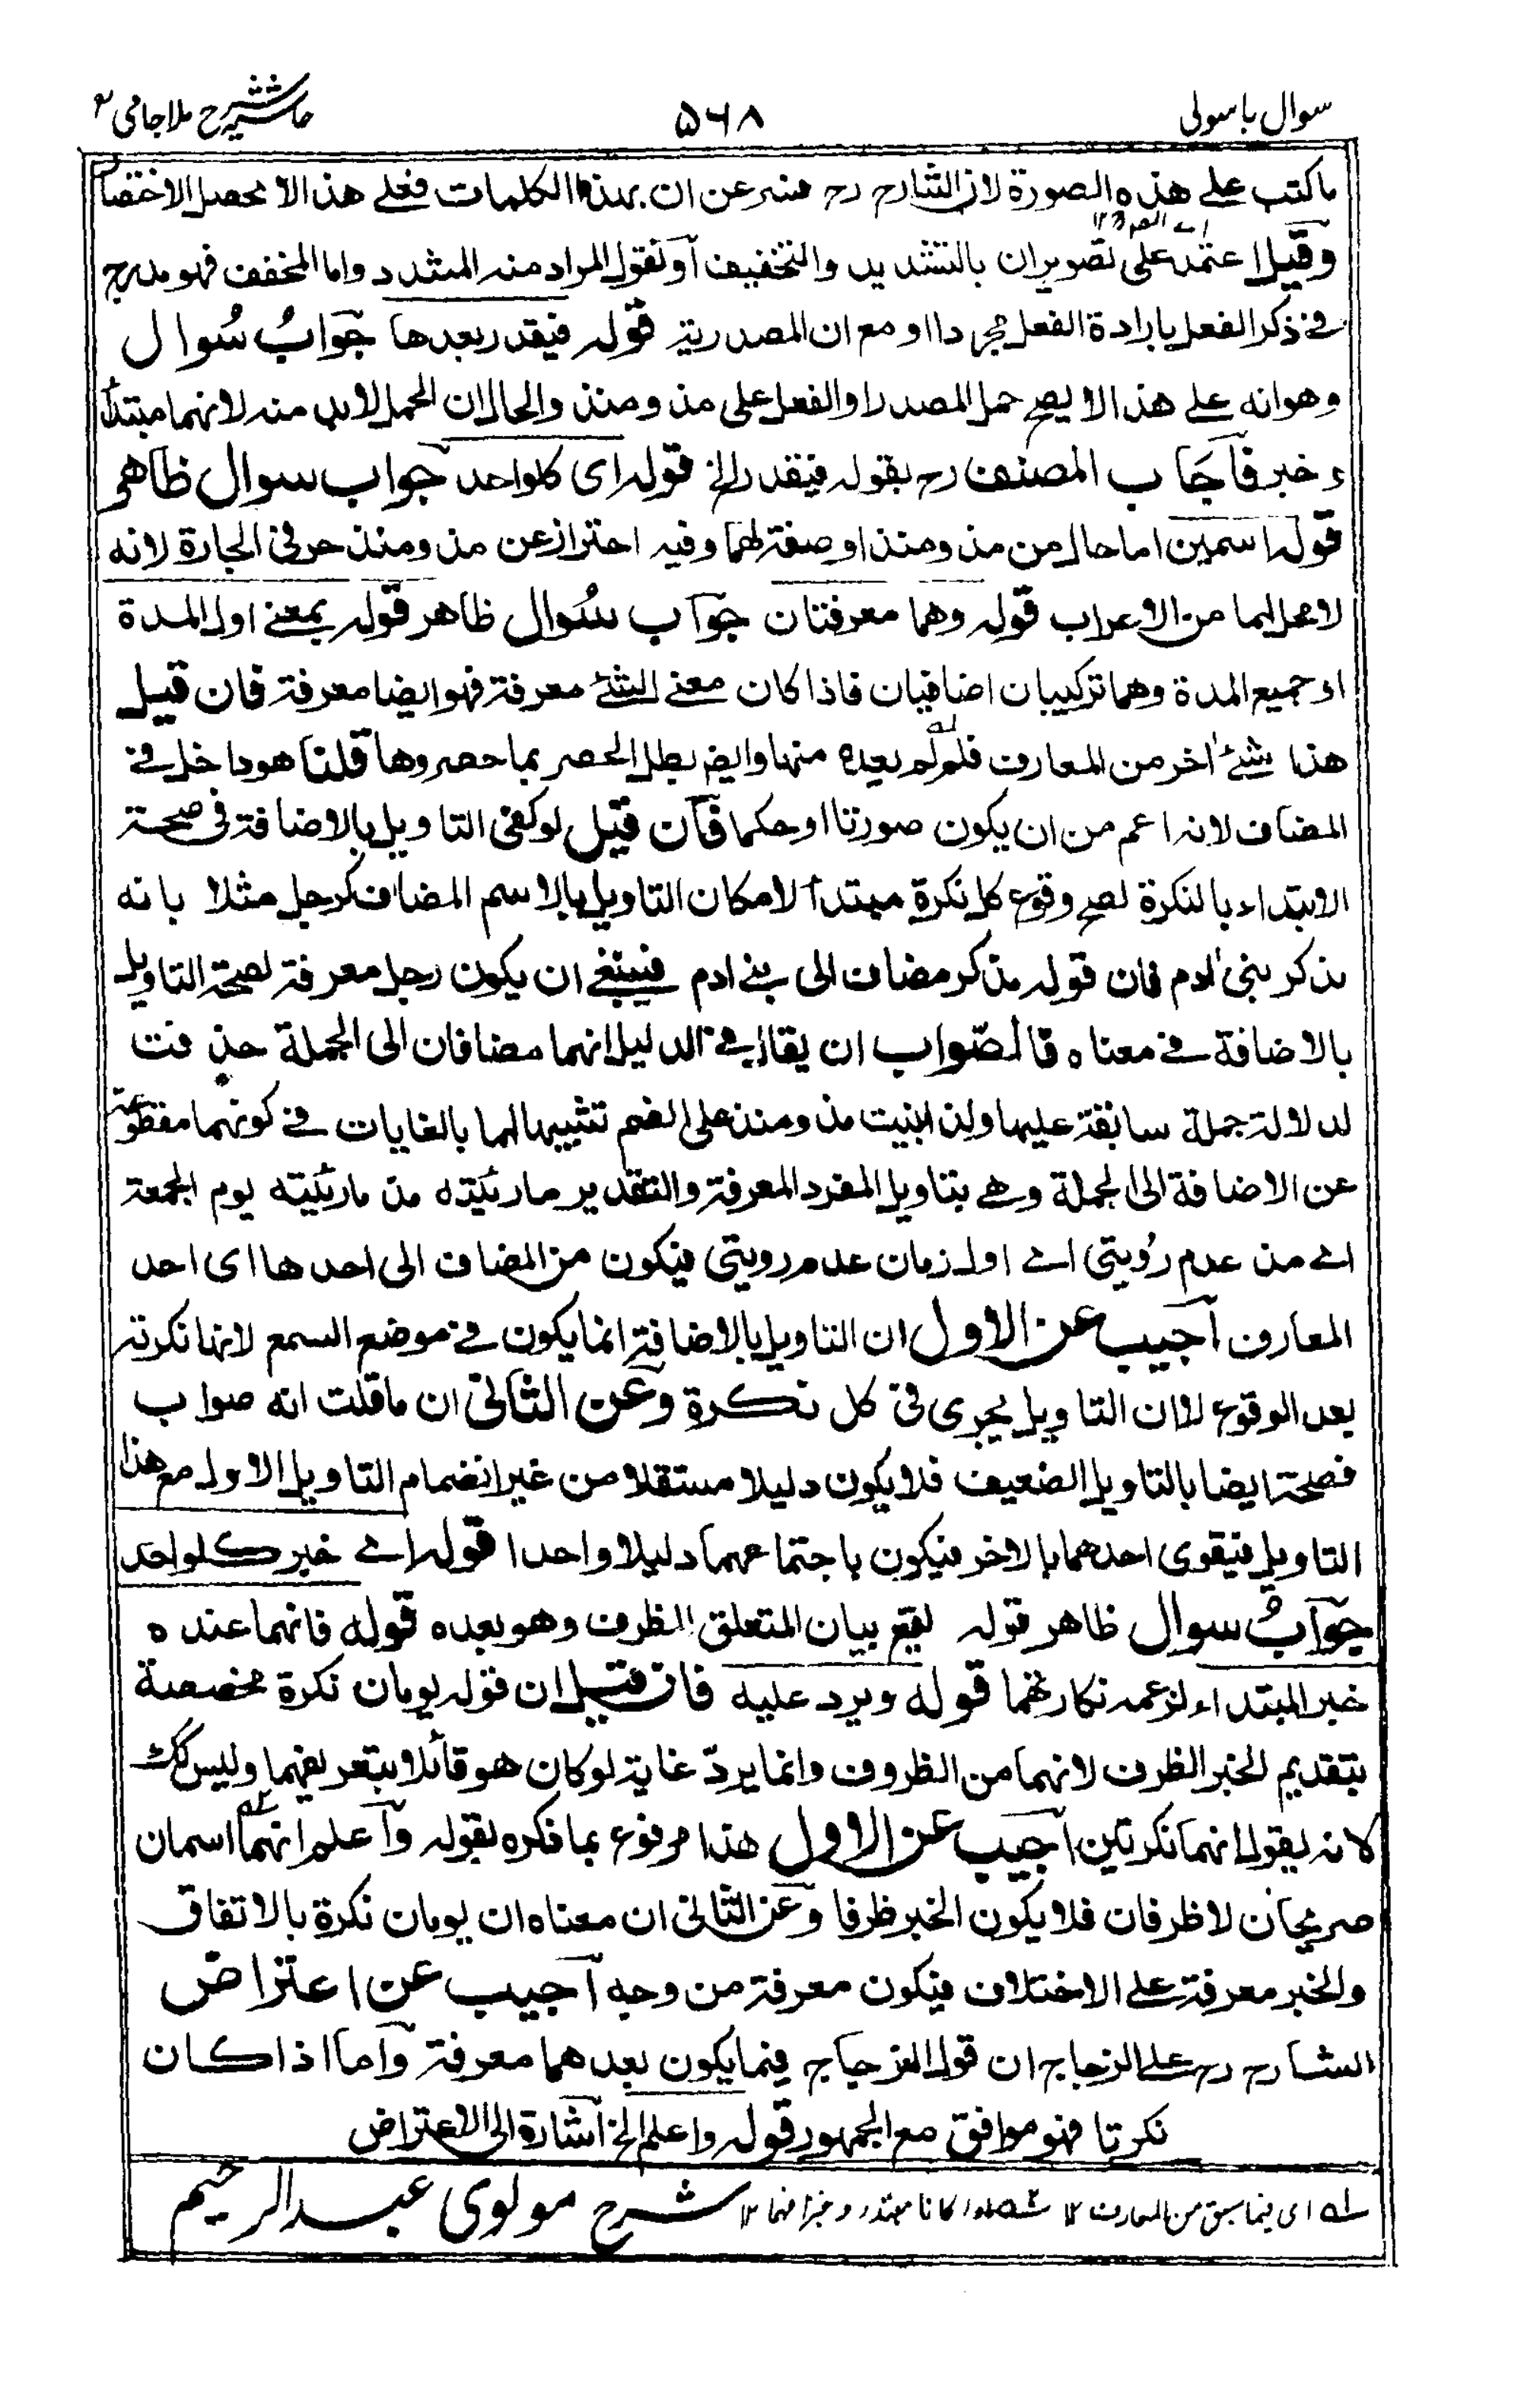 سوال باسولی ۵۶۸ حاشیہ شرح ملا جامی
ما كتب على هذه الصورة لان الشارح رح فسر عن ان بهذه الكلمات فعلى هذا لا يحصل الاختصا
وقيل اعتمد على تصوير ان بالتشديد والتخفيف او نقول المراد منه المشدد واما المخفف فهو مدرج
فى ذكر الفعل بارادة الفعل مجردا او مع ان المصدرية قوله فيقدر بعدها جواب سوال
وهو انه على هذا لا يصح حمل المصدر او الفعل على مذ ومنذ والحال ان الحمل لابد منه لانهما مبتدأ
و خبر فاجاب المصنف رح بقوله فيقدر الخ قوله اى كل واحد جواب سوال ظاهر
قوله اسمين اما حال من مذ ومنذ او صفة لهما وفيه احتراز عن مذ ومنذ حرفى الجارة لانه
لا محل لهما من الاعراب قوله وهما معرفتان جواب سوال ظاهر قوله بمعنى اول المدة
او جميع المدة وهما تركيبان اضافيان فاذا كان معنى الشئ معرفة فهو ايضا معرفة فان قيل
هذا شئ اخر من المعارف فلم لم يعده منها وايض بطل الحصر بما حصروها قلنا هو داخل فى
المضاف لانه اعم من ان يكون صورتا او حكما فان قيل لو كفى التاويل بالاضافة فى صحة
الابتداء بالنكرة لصح وقوع كل نكرة مبتدأ لامكان التاويل بالاسم المضاف كرجل مثلا بانه
مذكر بنى ادم فان قوله مذكر مضاف الى بنى ادم فينبغى ان يكون رجل معرفة لصحة التاويل
بالاضافة فى معناه فالصواب ان يقال فى الدليل انهما مضافان الى الجملة حذفت
لدلالة جملة سابقة عليها ولذا بنيت مذ ومنذ على الضم تشبيها لهما بالغايات فى كونهما مقطوعة
عن الاضافة الى الجملة وهى بتاويل المفرد المعرفة والتقدير ما رئيته مذ ما رئيته يوم الجمعة
اى مذ عدم رؤيتى اى اول زمان عدم رويتى فيكون من المضاف الى احدها اى احد
المعارف اجيب عن الاول ان التاويل بالاضافة انما يكون فى موضع السمع لانها نكرتة
بعد الوقوع لا ان التاويل يجرى فى كل نكرة وعن الثانى ان ما قلت انه صواب
فصحته ايضا بالتاويل الضعيف فلا يكون دليلا مستقلا من غير انضمام التاويل الاول مع هذا
التاويل فيقوى احدهما بالاخر فيكون باجتماعهما دليلا واحدا قوله اى خبر كلواحد
جواب سوال ظاهر قوله لقيع بيان المتعلق الظرف وهو بعده قوله فانهما عنده
خبر المبتداء لزعمه نكارتهما قوله ويرد عليه فان قيل ان قوله يومان نكرة مخصصة
بتقديم الخبر الظرف لانهما من الظروف وانما يرد غاية لو كان هو قائلا بتعريفهما وليس كك
لانه يقول انهما نكرتين اجيب عن الاول هذا مرفوع بما ذكره بقوله واعلم انهما اسمان
صريحان لا ظرفان فلا يكون الخبر ظرفا وعن الثانى ان معناه ان يومان نكرة بالاتفاق
والخبر معرفة على الاختلاف فيكون معرفة من وجه اجيب عن اعتراض
الشارح رح على الزجاج ان قول الزجاج فيما يكون بعدهما معرفة واما اذا كان
نكرتا فهو موافق مع الجمهور قوله واعلم الخ اشارة الى الاعتراض
له اى فيما سبق من المعارف ۱۲ كانا مبتدء و خبرا فيهما ۱۲ شرح مولوى عبد الرحيم